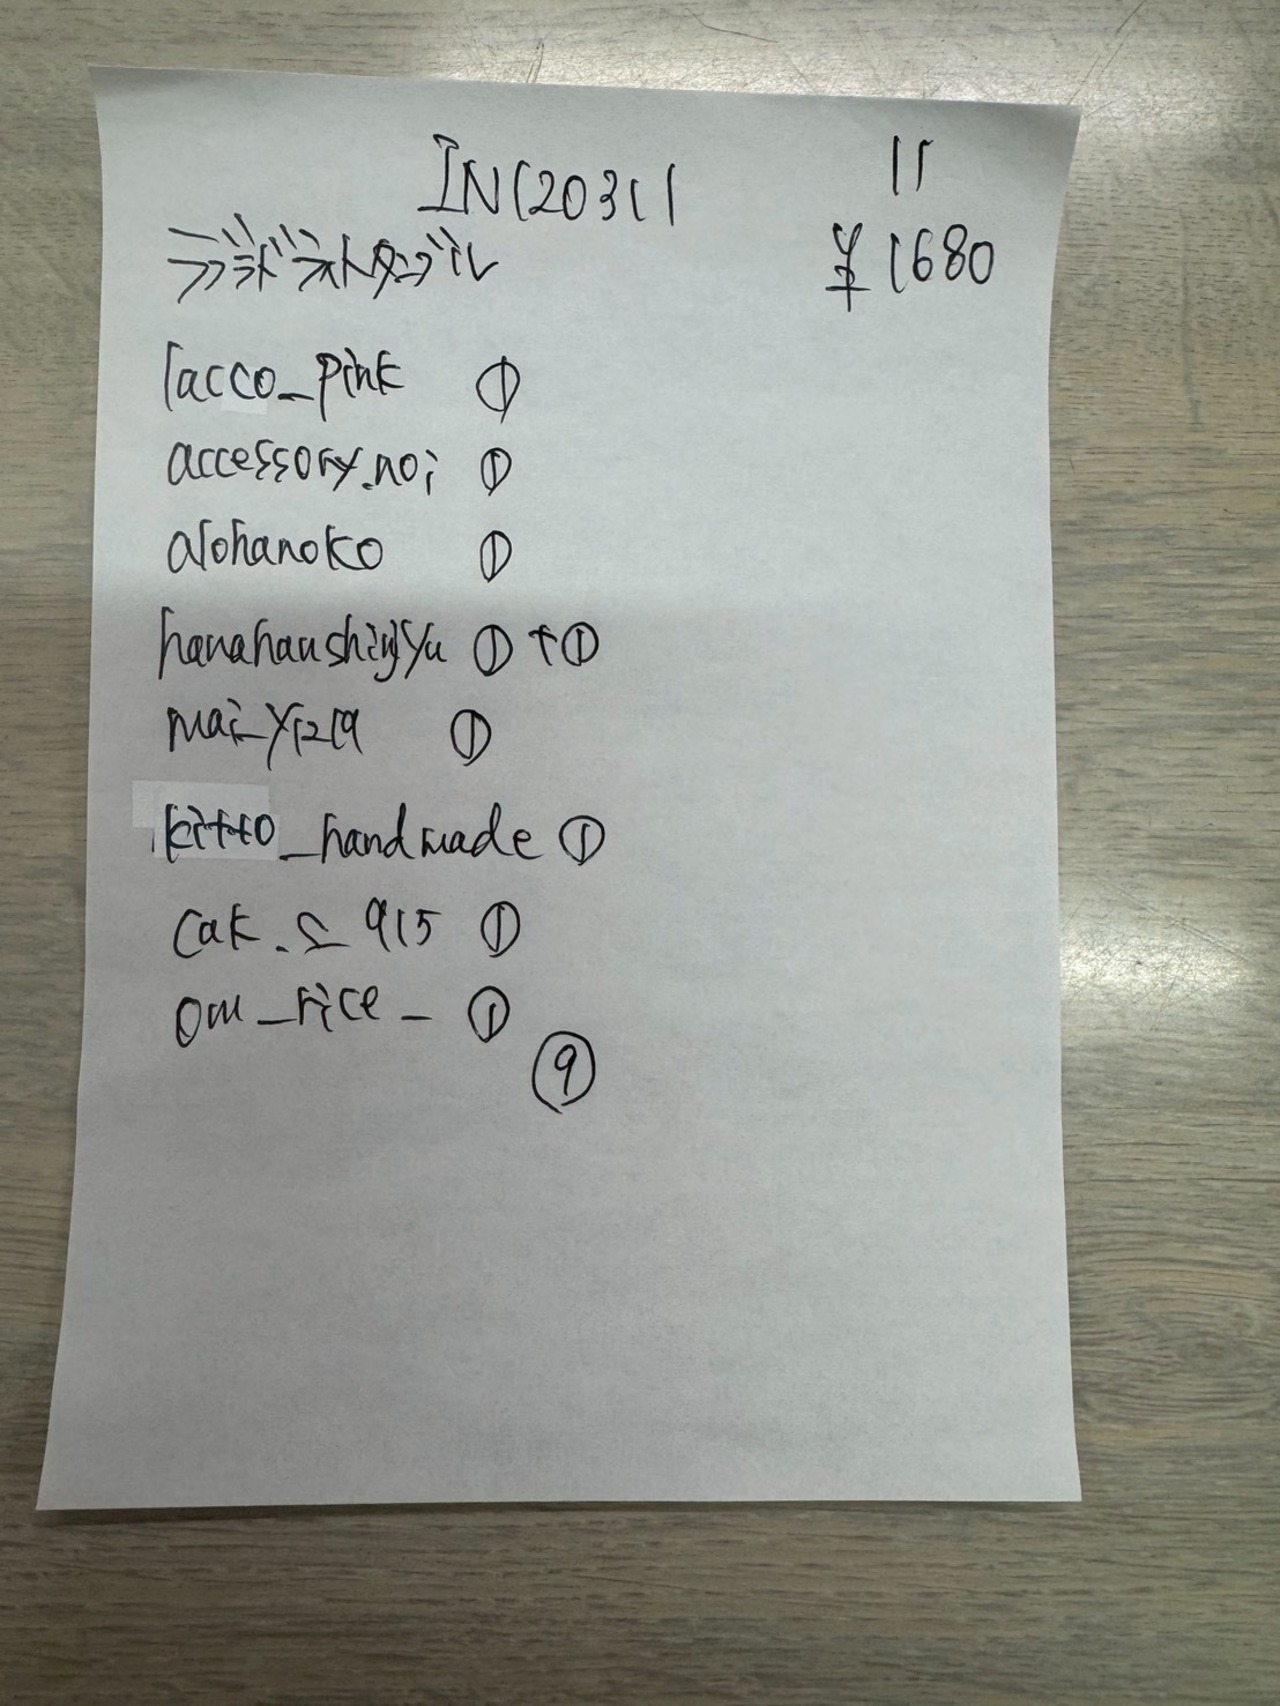 INC20311 11
¥1680
lacco_pink ①
accessory.noi ①
alohanoko ①
hanahanshinyu ① + ①
mai_y1219 ①
kitto_handmade ①
cak.s_915 ①
om_rice_ ①
⑨